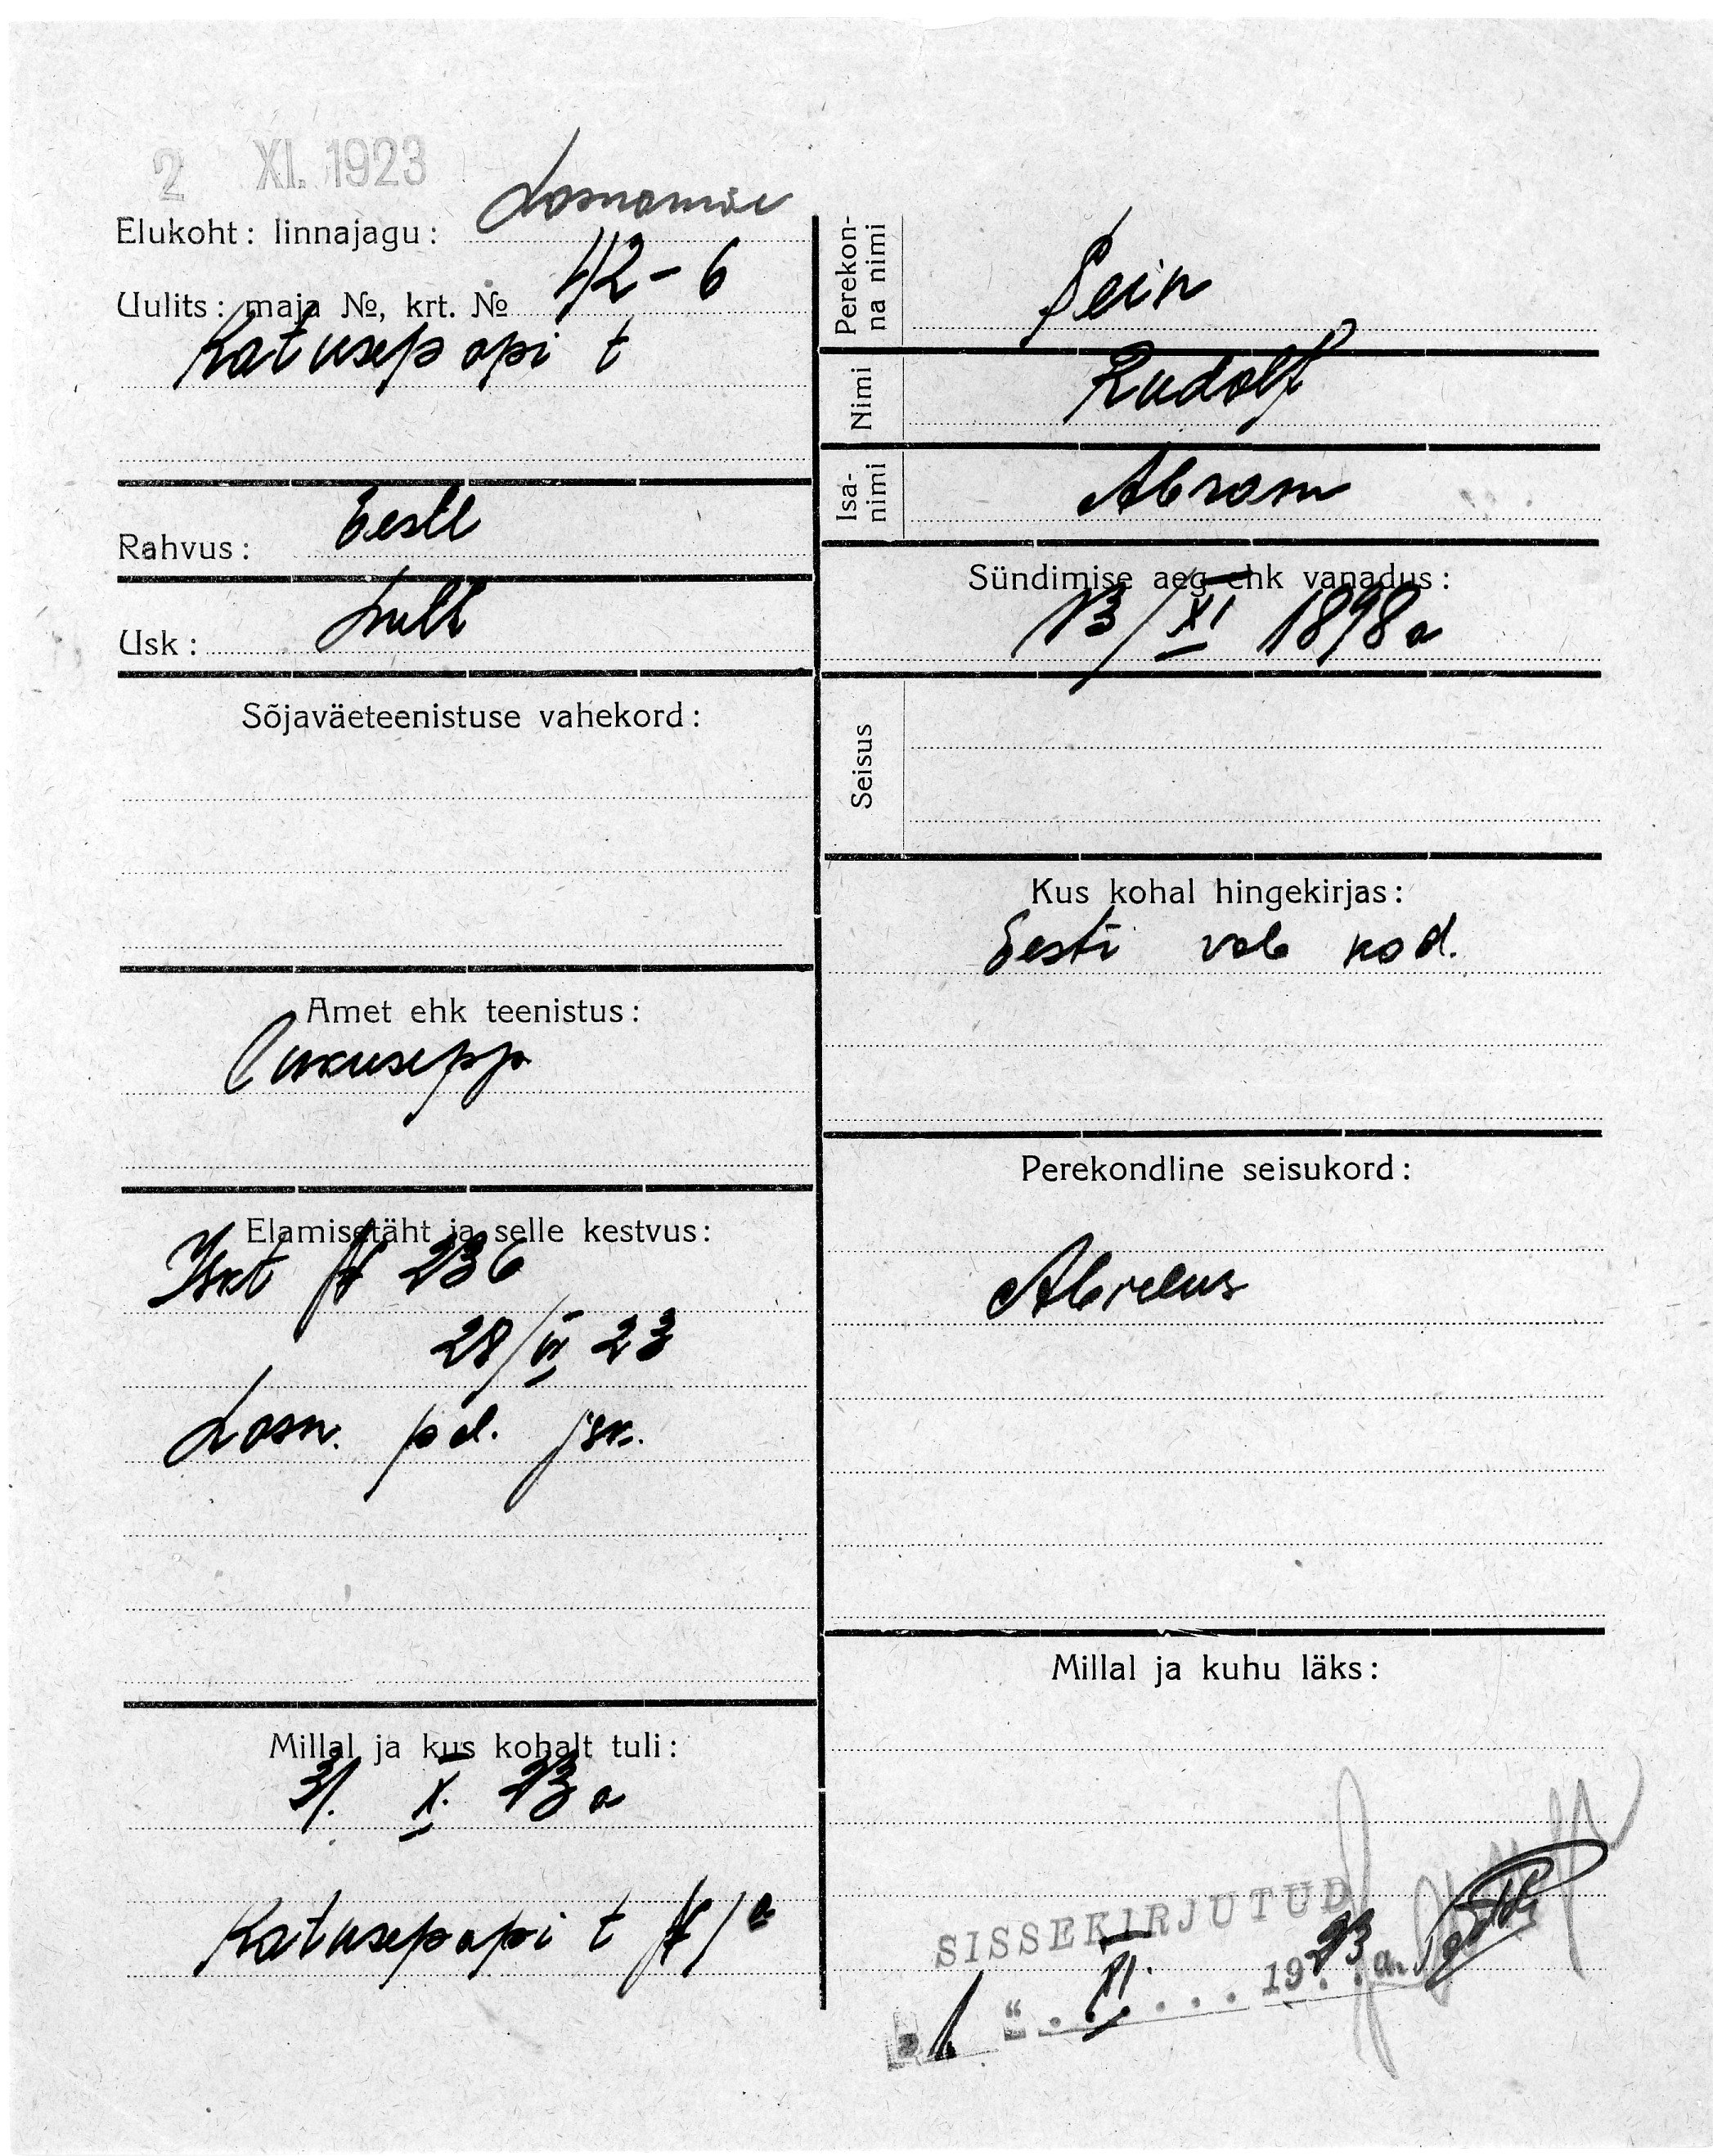 2 XI. 1923
Elukoht: linnajagu: Lasnamäe
Uulits: maja №, krt. № 42-6
Katusepapi t
Rahvus: Eesti
Usk: Lutt
Sõjaväeteenistuse vahekord:
Amet ehk teenistus:
Puusepp
Elamisetäht ja selle kestvus:
Iskt № 236
28/VI 23
Lasn. pol. jsk.
Millal ja kus kohalt tuli:
31. X. 23 a
Katusepapi t № 1a
Perekonna nimi
Pein
Nimi
Rudolf
Isa-nimi
Abram
Sündimise aeg ehk vanadus:
13/XI 1898 a
Seisus
Kus kohal hingekirjas:
Eesti vab kod.
Perekondline seisukord:
Abielus
Millal ja kuhu läks:
SISSEKIRJUTUD
1 " XI. 1923 a.